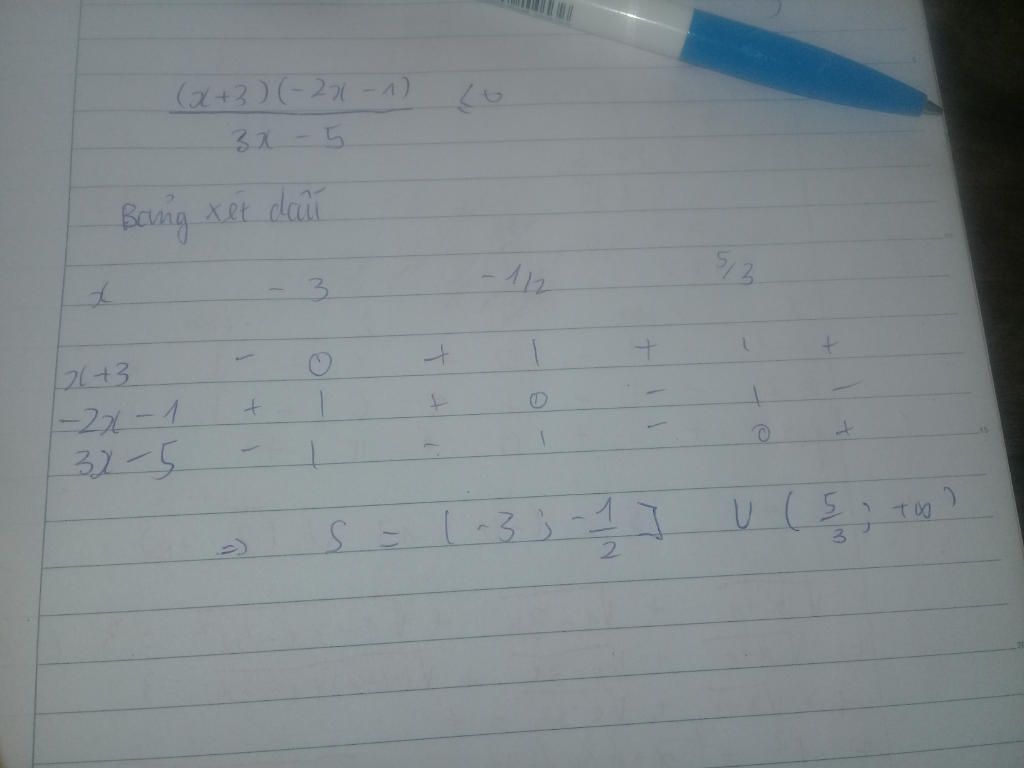 (x+3)(-2x-1) ≤0
3x-5
Bảng xét dấu
x -3 -1/2 5/3
x+3 - 0 + | + | +
-2x-1 + | + 0 - | -
3x-5 - | - | - 0 +
=> S = [-3; -1/2] U (5/3; +∞)